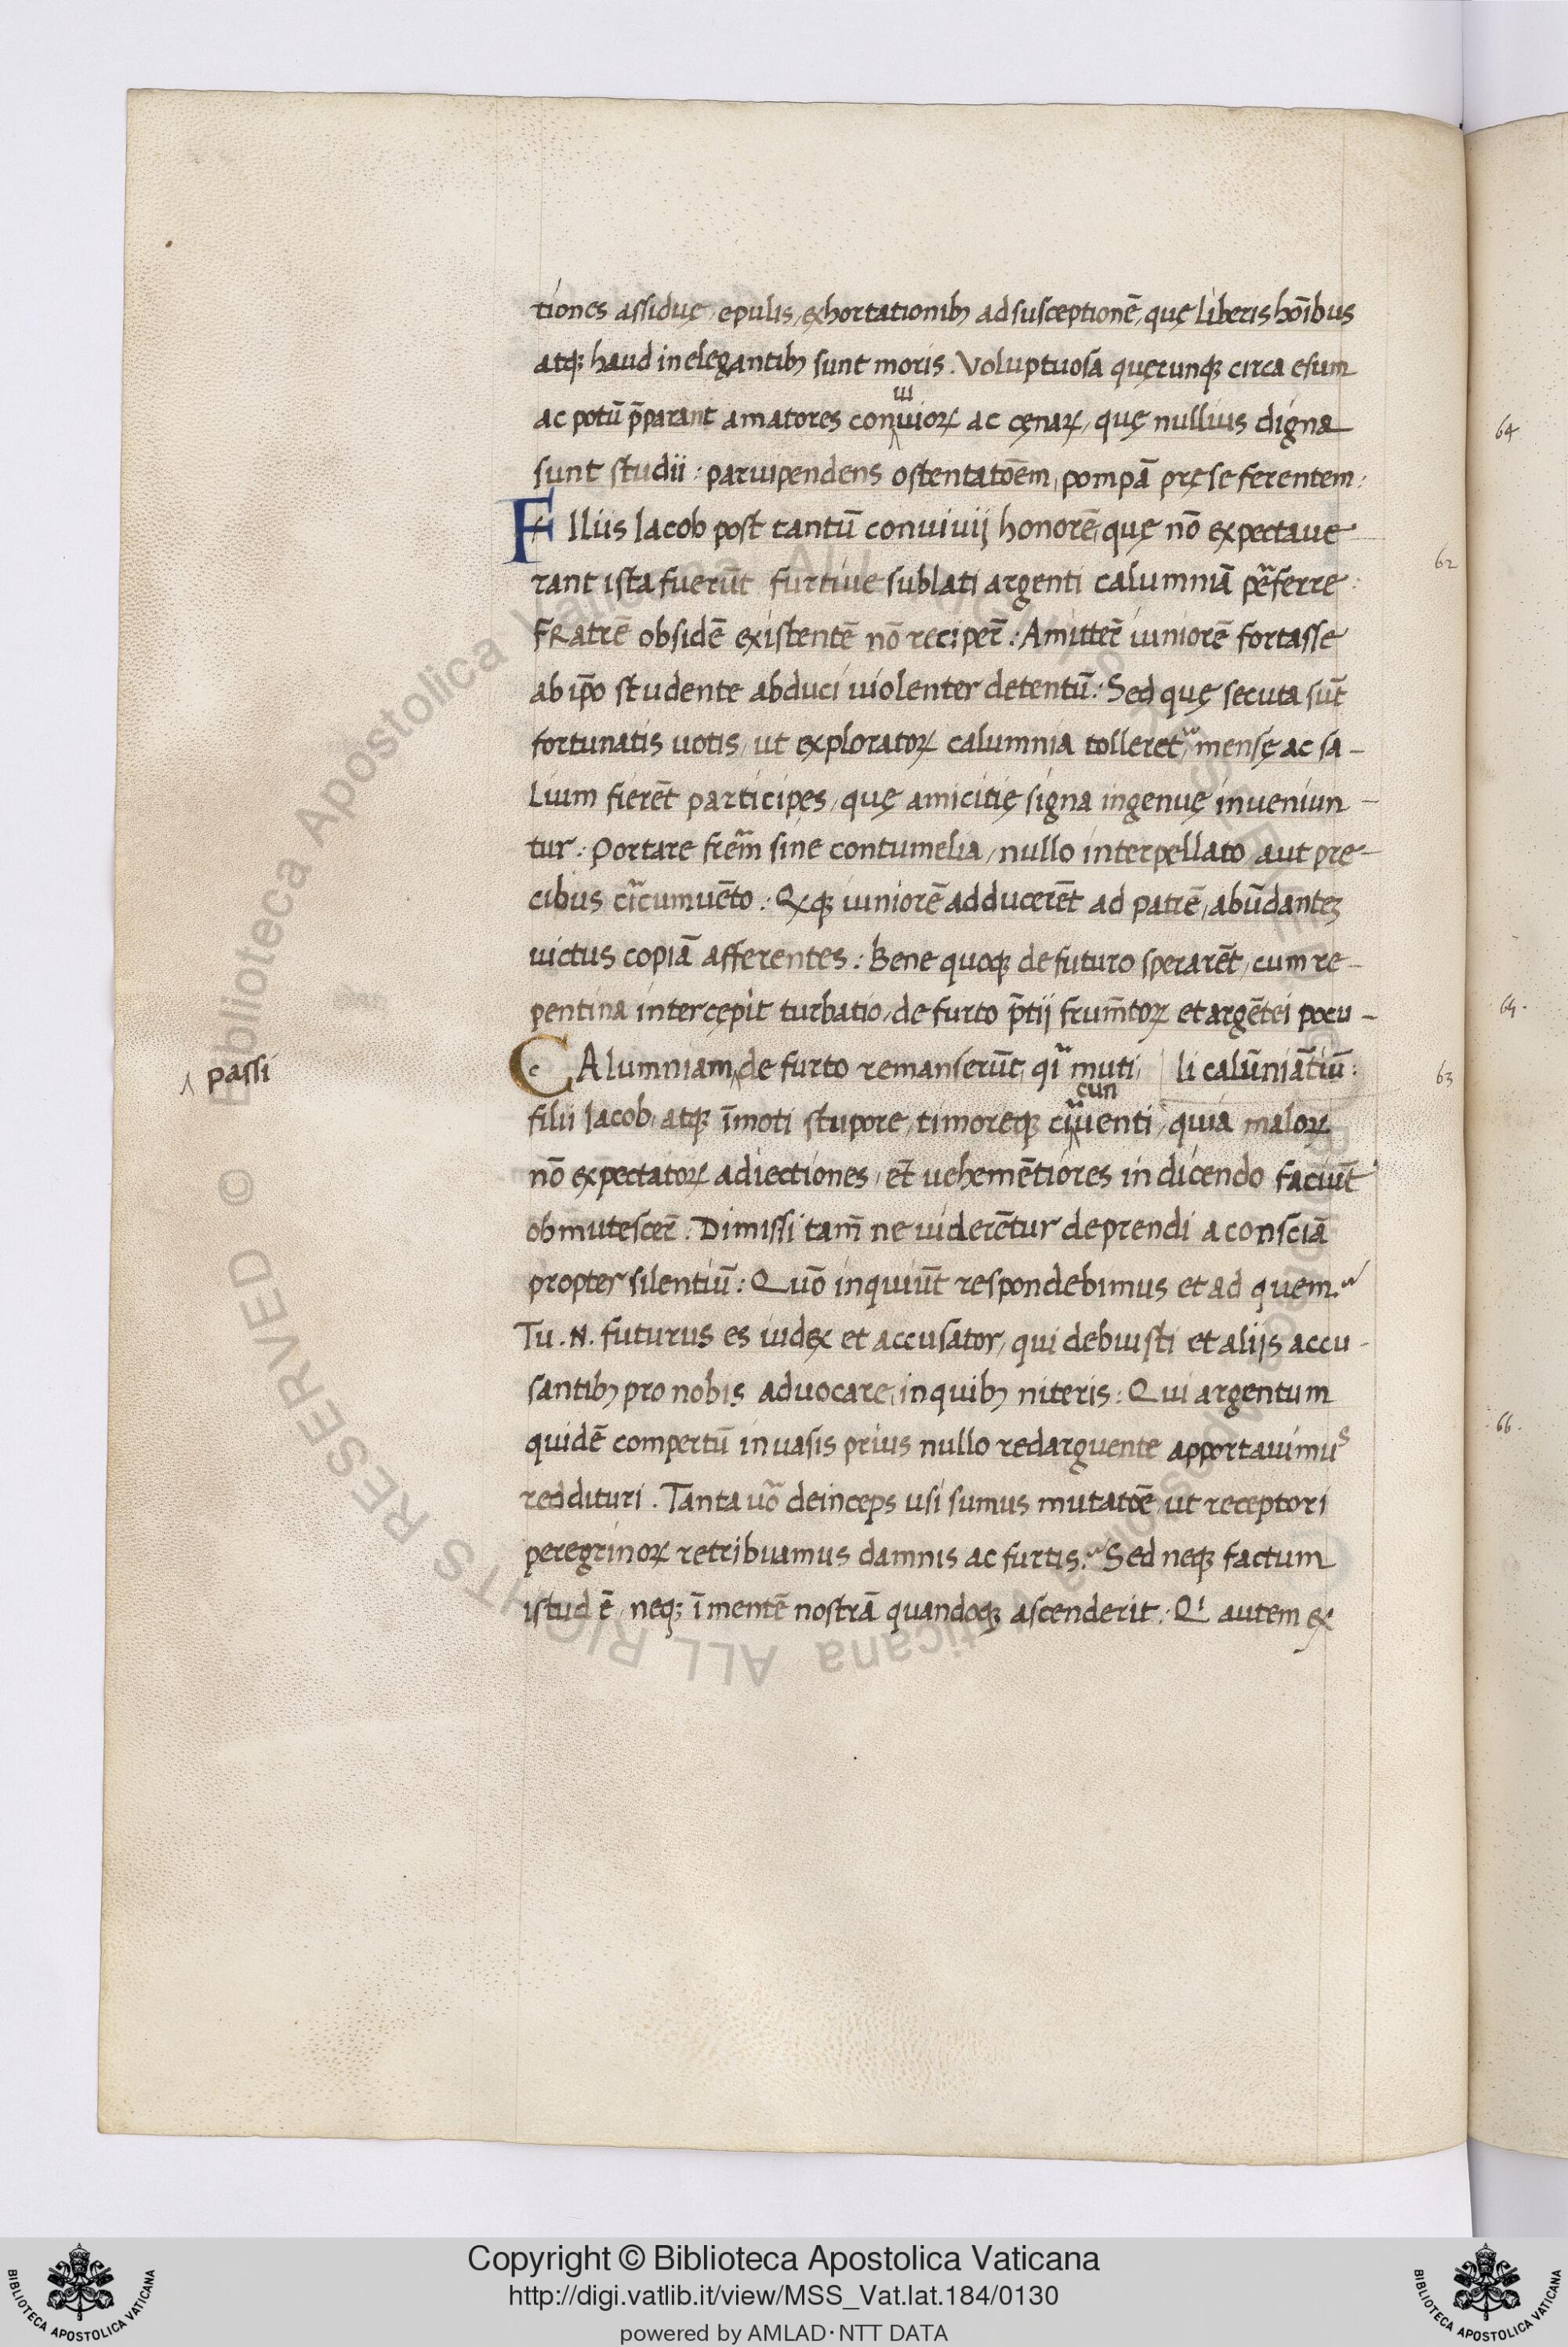 tiones assiduę, epulis, exhortationibꝫ ad susceptionē, quę liberis hoībus
atqꝫ haud inelegantibꝫ sunt moris. Voluptuosa quęcunqꝫ circa esum
ac potū p̄parant amatores conuiuioꝝ ac cęnaꝝ, quę nullius digna
sunt studii: paruipendens ostentatōem, pompā pręse ferentem:
FIliis Iacob post tantū conuiuij honorē, quę nō expectaue
rant ista fuerūt furtiue sublati argenti calumniā p̄ferre:
FRatrē obsidē existentē nō reciper̄: Amitter̄ iuniorē fortasse
ab ip̄o studente abduci uiolenter detentū: Sed quę secuta sūt
fortunatis uotis, ut exploratoꝝ calumnia tolleret᷑, mensę ac sa-
lium fierēt participes, quę amicitię signa ingenuę inueniun-
tur: Portare frēm sine contumelia, nullo interpellato, aut pre-
cibus cir̄cumuēto: Qꝫqꝫ iuniorē adducerēt ad patrē, abūdantez
uictus copiā afferentes: Bene quoqꝫ de futuro sperarēt, cum re-
pentina intercępit turbatio, de furto p̄tii frum̄toꝝ et argētei pocu-
CAlumniam de furto remanserūt, qī muti, li calūniātiū:
passi
filii Iacob, atqꝫ īmoti stupore, timoreqꝫ circunuenti, quia maloꝝ
nō expectatoꝝ adiectiones, et̄ uehemētiores in dicendo faciūt
obmutescer̄: Dimissi tam̄ ne uiderētur deprendi a consciā
propter silentiū: Quō inquiūt respondebimus et ad quem:
Tu .N. futurus es iudex et accusator, qui debuisti et aliis accu-
santibꝫ pro nobis aduocare, in quibꝫ niteris: Qui argentum
quidē compertū in uasis prius nullo redarguente apportauimus
reddituri. Tanta uō deinceps usi sumus mutatōe, ut receptori
peregrinoꝝ retribuamus damnis ac furtis: Sed neqꝫ factum
istud ē, neqꝫ ī mentē nostrā quandoqꝫ ascenderit: Qi autem ex
64
62
65.
63
66.
Copyright © Biblioteca Apostolica Vaticana
http://digi.vatlib.it/view/MSS_Vat.lat.184/0130
powered by AMLAD·NTT DATA
BIBLIOTECA APOSTOLICA VATICANA
BIBLIOTECA APOSTOLICA VATICANA